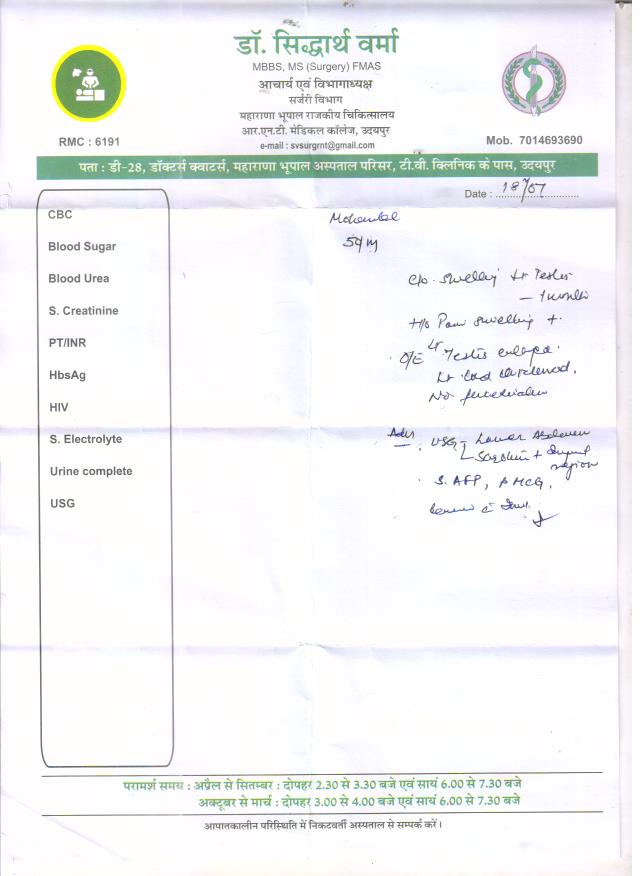 डॉ. सिद्धार्थ वर्मा
MBBS, MS (Surgery) FMAS
आचार्य एवं विभागाध्यक्ष
सर्जरी विभाग
महाराणा भूपाल राजकीय चिकित्सालय
आर.एन.टी. मेडिकल कॉलेज, उदयपुर
e-mail : svsurgrnt@gmail.com
RMC : 6191
Mob. 7014693690
पता : डी-28, डॉक्टर्स क्वाटर्स, महाराणा भूपाल अस्पताल परिसर, टी.वी. क्लिनिक के पास, उदयपुर
Date : 18/07
CBC
Blood Sugar
Blood Urea
S. Creatinine
PT/INR
HbsAg
HIV
S. Electrolyte
Urine complete
USG
c/o swelling Lt Testis
- 1 month
H/o Pain swelling +
O/E Lt Testis enlarged.
Lt cord thickened.
No
Adv
USG - Lower Abdomen
Scrotum + Inguinal region
S. AFP, β HCG,
परामर्श समय : अप्रैल से सितम्बर : दोपहर 2.30 से 3.30 बजे एवं सायं 6.00 से 7.30 बजे
अक्टूबर से मार्च : दोपहर 3.00 से 4.00 बजे एवं सायं 6.00 से 7.30 बजे
आपातकालीन परिस्थिति में निकटवर्ती अस्पताल से सम्पर्क करें।